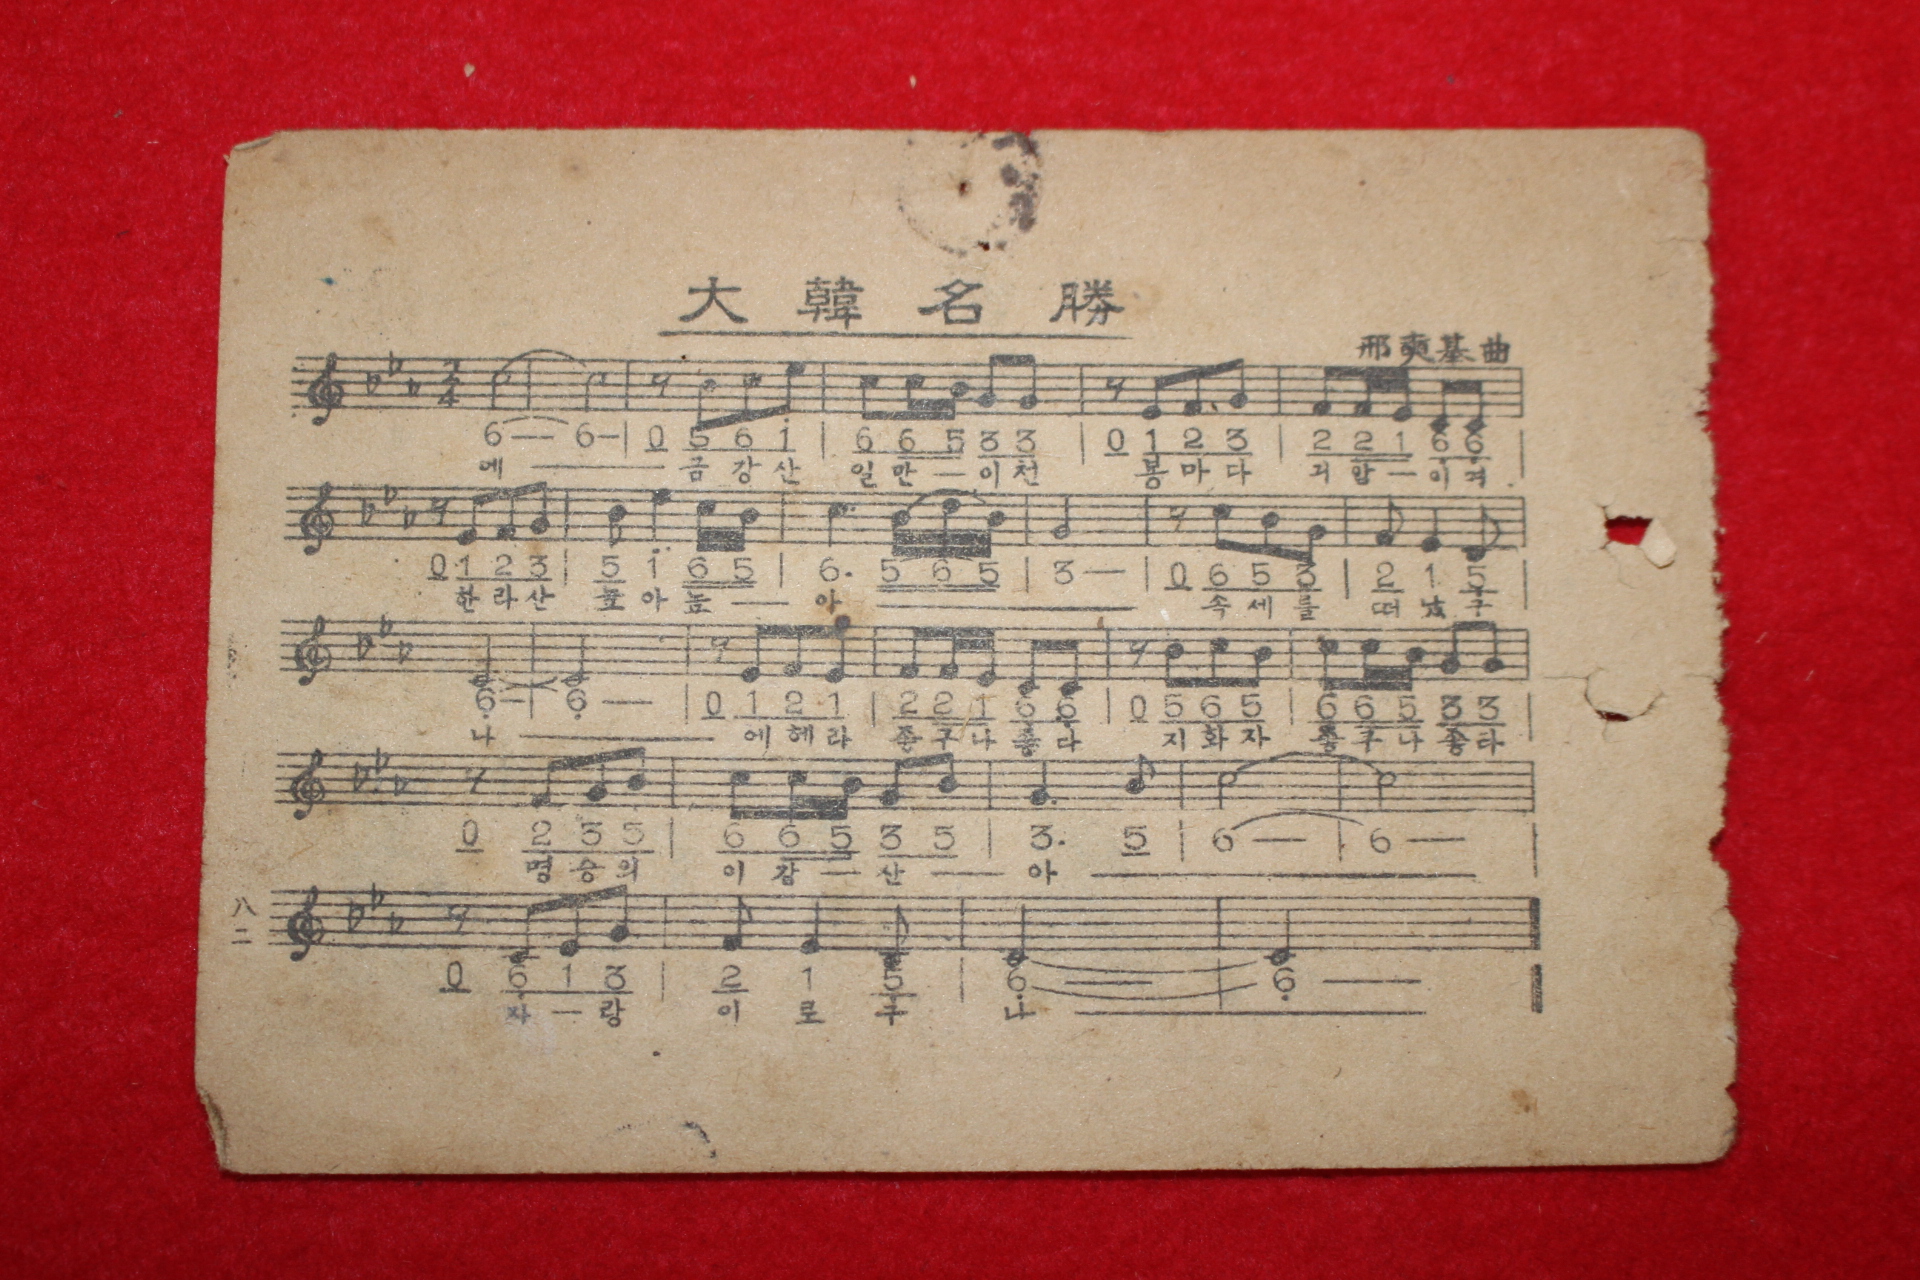 大韓名勝
邢奭基曲
2/4
6—— 6—| 0 5 6 1 | 6 6 5 3 3 | 0 1 2 3 | 2 2 1 6 6 |
에 —— 금 강 산 일 만 — 이 천 봉 마 다 귀 암 — 이 겨
0 1 2 3 | 5 1 6 5 | 6. 5 6 5 | 3— | 0 6 5 3 | 2 1 5 |
한 라 산 높 아 높 — 아 —— 속 세 를 떠 났 구
6— | 6— | 0 1 2 1 | 2 2 1 6 6 | 0 5 6 5 | 6 6 5 3 3
나 —— 에 헤 라 좋 구 나 좋 다 지 화 자 좋 구 나 좋 다
0 2 3 5 | 6 6 5 3 5 | 3. 5 | 6— | 6— |
명 승 의 이 강 — 산 — 아 ——
八二
0 6 1 3 | 2 1 5 | 6— 6—
자 — 랑 이 로 구 나 ——